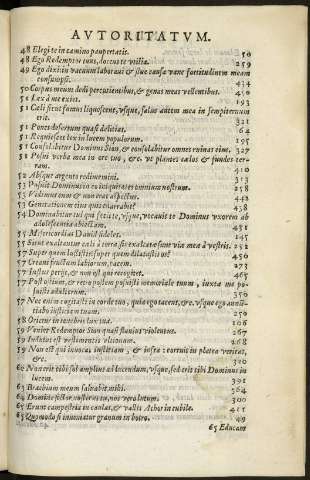 AVTORITATVM.
48 Elegi te in camino paupertatis. 50
48 Ego Redemptor tuus, docens te vtilia. 259
49 Ego dixi in vacuum laboraui & siue causa vane fortitudinem meam
consumpsi. 240
50 Corpus meum dedi percutientibus, & genas meas vellentibus. 410
51 Lex à me exiet. 193
51 Cæli sicut fumus liquescent, vsque, salus autem mea in sempiternum
erit. 321
51 Ponet desertum quasi delitias. 64
51 Requiescet lex in lucem populorum. 195
51 Consolabitur Dominus Sion, & consolabitur omnes ruinas eius. 327
51 Posui verba mea in ore tuo, & c. vt plantes cælos & fundes ter-
ram. 430
52 Absque argento redimemini. 313
53 Posuit Dominus in eo iniquitates omnium nostrum. 258
53 Vidimus eum & non erat aspectus. 438
53 Generationem eius quis enarrabit? 351
54 Dominabitur tui qui fecit te, vsque, vocauit te Dominus vxorem ab
adolescentia abiectam. 431
55 Misericordias Dauid fideles. 145
55 Sicut exaltantur cæli à terra sic exaltatæ sunt viæ meæ à vestris. 251
57 Super quem lusistis? super quem dilatastis os? 450
57 Creaui fructum labiorum, pacem. 273
57 Iustus perijt, & non est qui recogitet. 465
57 Post ostium, & retro postem posuisti memoriale tuum, iuxta me po-
suisti adulterum. 350
57 Nec enim cogitasti in corde tuo, quia ego tacens, & c. vsque ego annũ-
tiabo iustitiam tuam. 267
58 Orietur in tenebris lux tua. 168
59 Veniet Redemptor Sion quasi fluuius violentus. 267
59 Indutus est vestimentis vltionum. 245
59 Non est qui inuocet iustitiam, & infra: corruit in platea veritas,
& c. 300
60 Non erit tibi sol amplius ad lucendum, vsque, sed erit tibi Dominus in
lucem. 391
63 Brachium meum saluabit mihi. 504
64 Domine fictor noster es tu, nos vero lutum. 300
65 Erunt campestria in caulas, & vallis Achor in cubile. 411
65 Quomodo si inueniatur granum in botro. 49
65 Educam